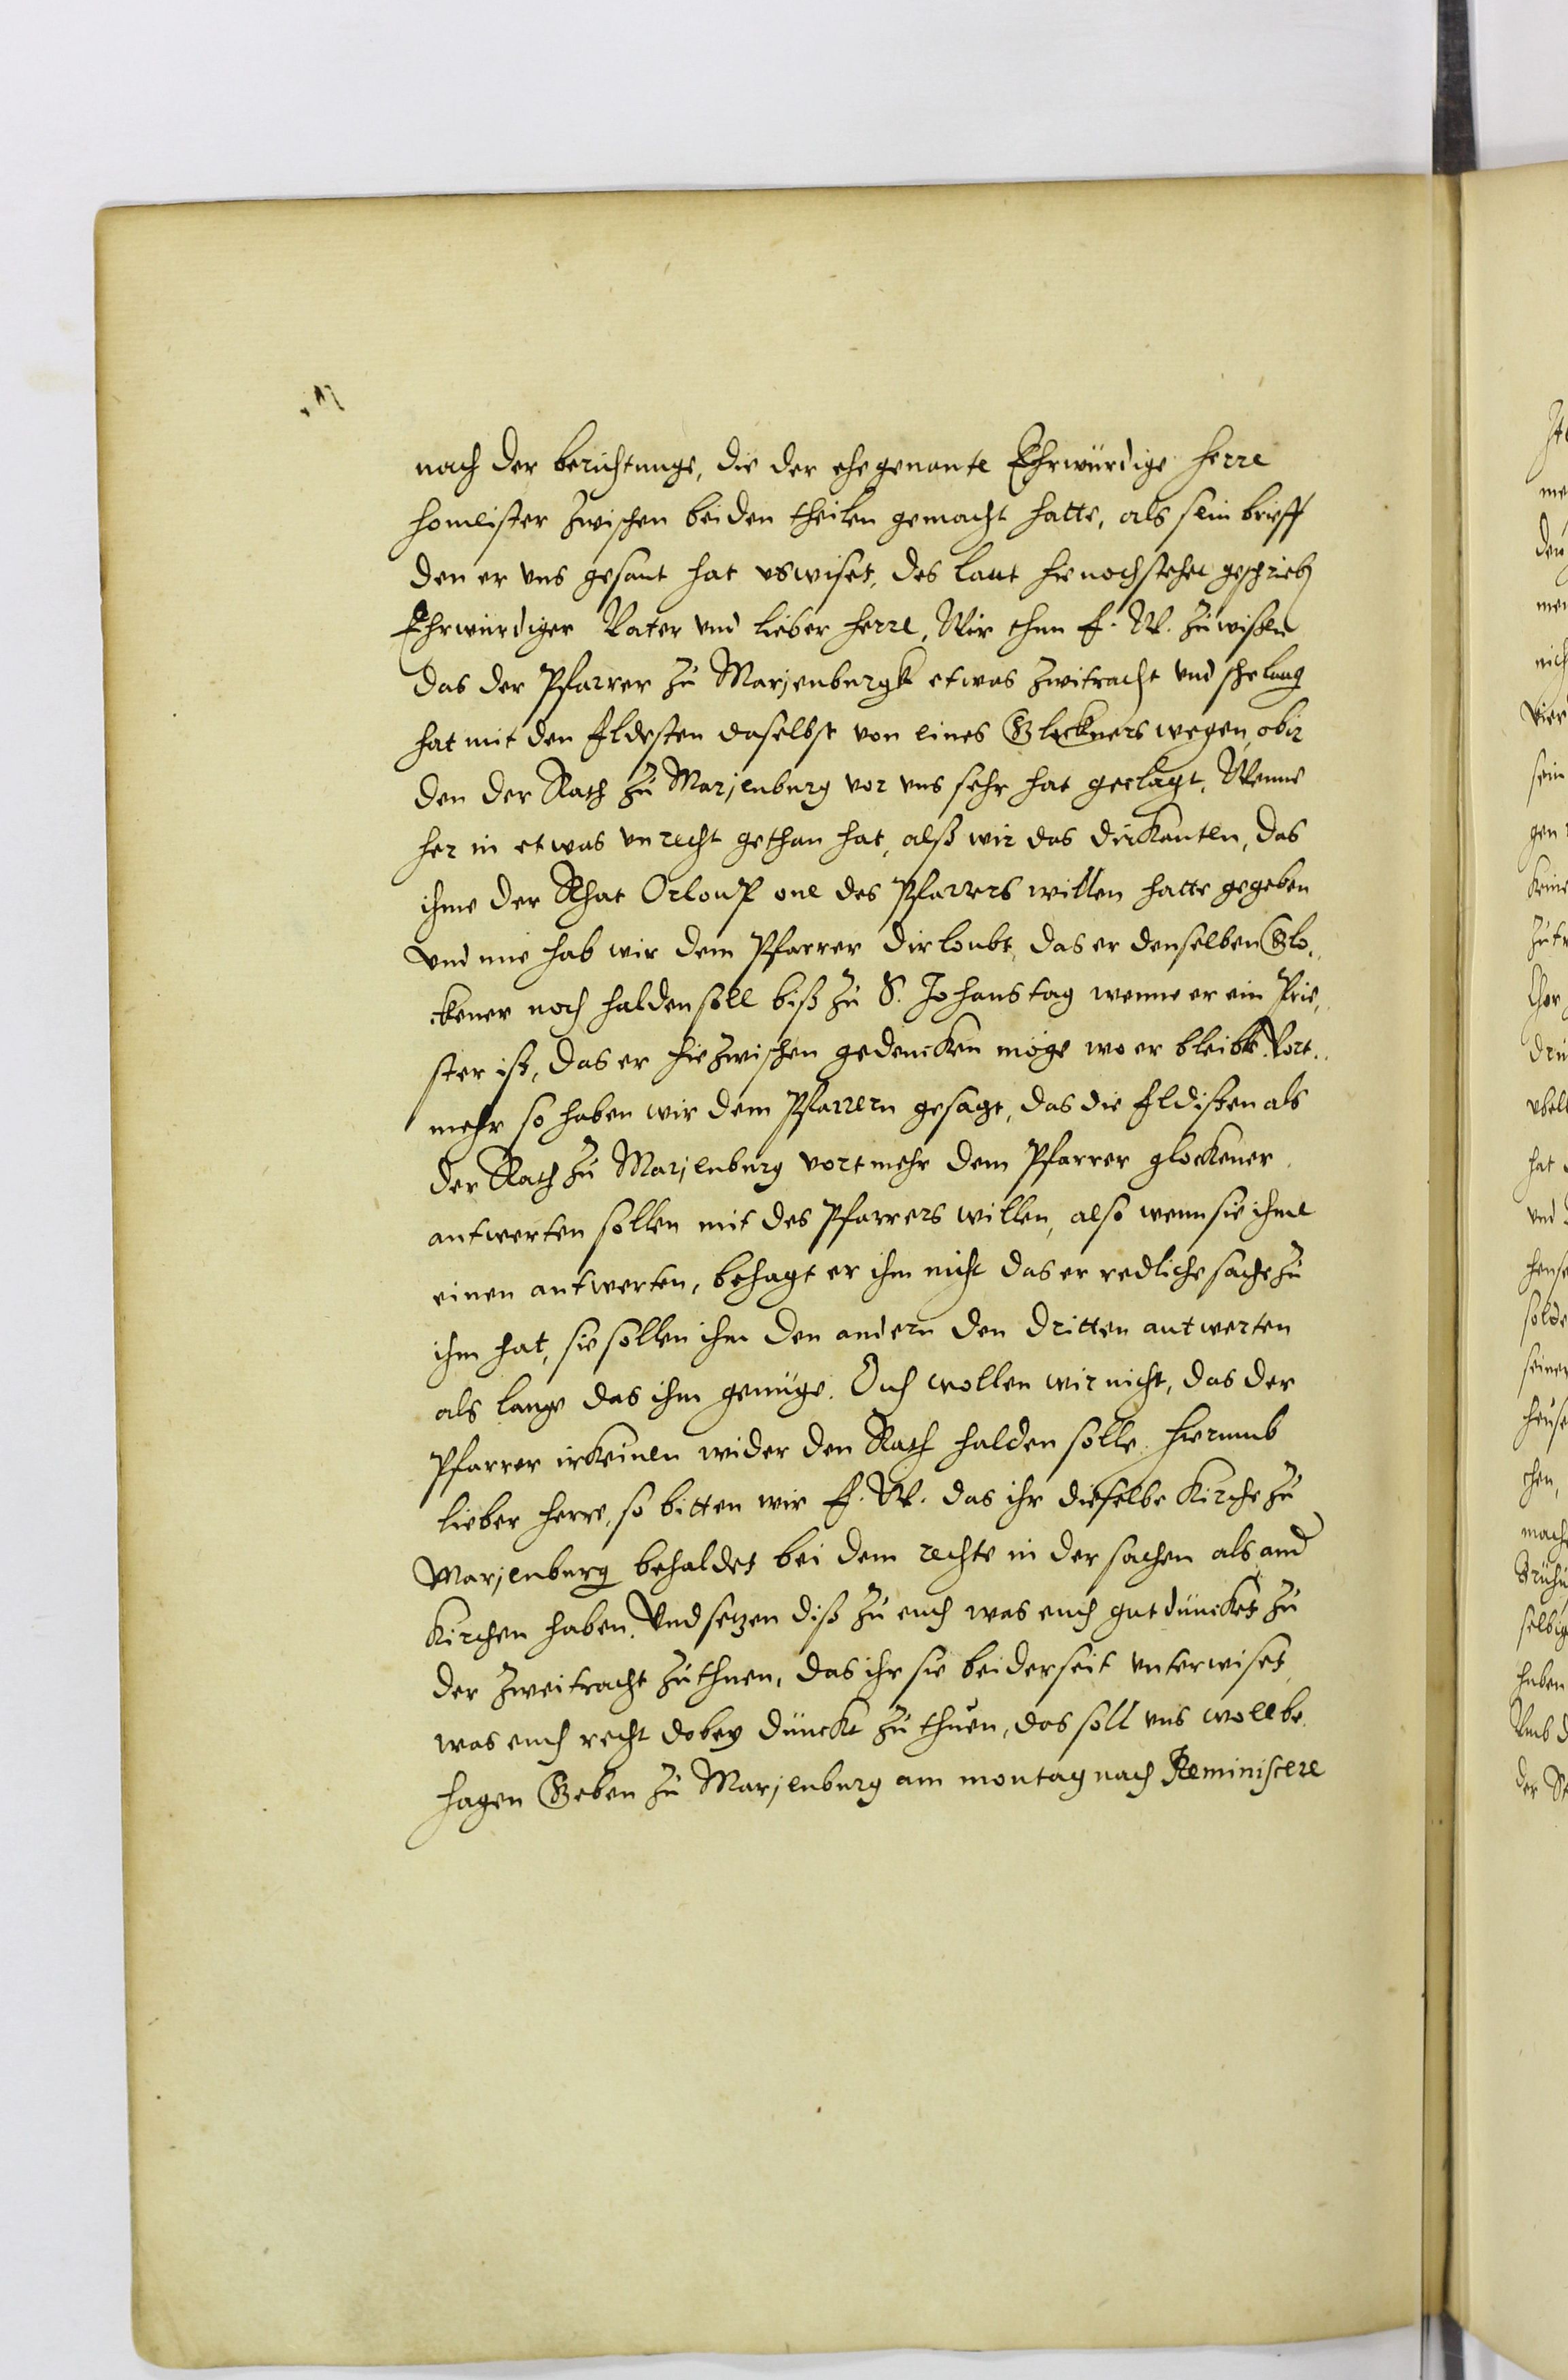 nach der berichtunge, die der ehegenante Ehrwürdige Herre
Homeister zwischen beiden theilen gemacht hatte, als sein brieff
den er vns gesant hat vswiset, des laut hienochstehet geschrieben
Ehrwürdiger Vater vnd lieber Herre, Wir thun E. W. zuwissen
das der Pfarrer zu Marjenburgk etwas zwitracht vnd schelung
hat mit den Eldesten daselbst von eines Glockners wegen, obir
den der Rath zu Marjenburg vor vns sehr hat geclagt, Wenne
her in etwas vnrecht gethan hat, alß wir das dirkanten, das
ihme der Rhat Orlouff one des Pfarrers willen hatte gegeben
Vnd nue hab wir dem Pfarrer dirloubt, das er denselben Glo-
ckener noch halden soll biß zu S. Johanstag wenne er ein Prie-
ster ist, das er hiezwischen gedencken möge wo er bleibe. Vort-
mehr so haben wir dem Pfarrern gesagt, das die Eldisten als
der Rath zu Marjenburg vortmehr dem Pfarrer glockener
antwerten sollen mit des Pfarrers willen, also wenn sie ihme
einen antwerten, behagt er ihm nicht das er redliche sache zu
ihm hat, sie sollen ihm den andern den dritten antwerten
als lange das ihm genüge. Ouch wollen wir nicht, das der
Pfarrer irkeinen wider den Rath halden solle. Hierumb
lieber Herre, so bitten wir E. W. das ihr dieselbe Kirche zu
Marjenburg behaldet bei dem rechte in der sachen als and
Kirchen haben. Vnd setzen diß zu euch was euch gut düncket zu
der zweitracht zuthuen, das ihr sie beiderseit vnterwiset
was euch recht dobey dünckt zu thuen, das soll vns woll be-
hagen Geben zu Marjenburg am montag nach Reminiscere